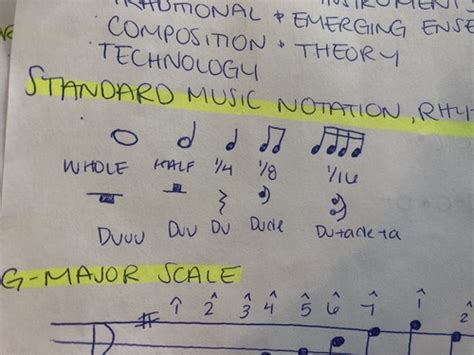 TRADITIONAL + EMERGING ENSE
COMPOSITION + THEORY
TECHNOLOGY
STANDARD MUSIC NOTATION, RHYT
WHOLE HALF 1/4 1/8 1/16
DUUU DUU DU DUDE DU-TA-DE-TA
G-MAJOR SCALE
1 2 3 4 5 6 7 1 2